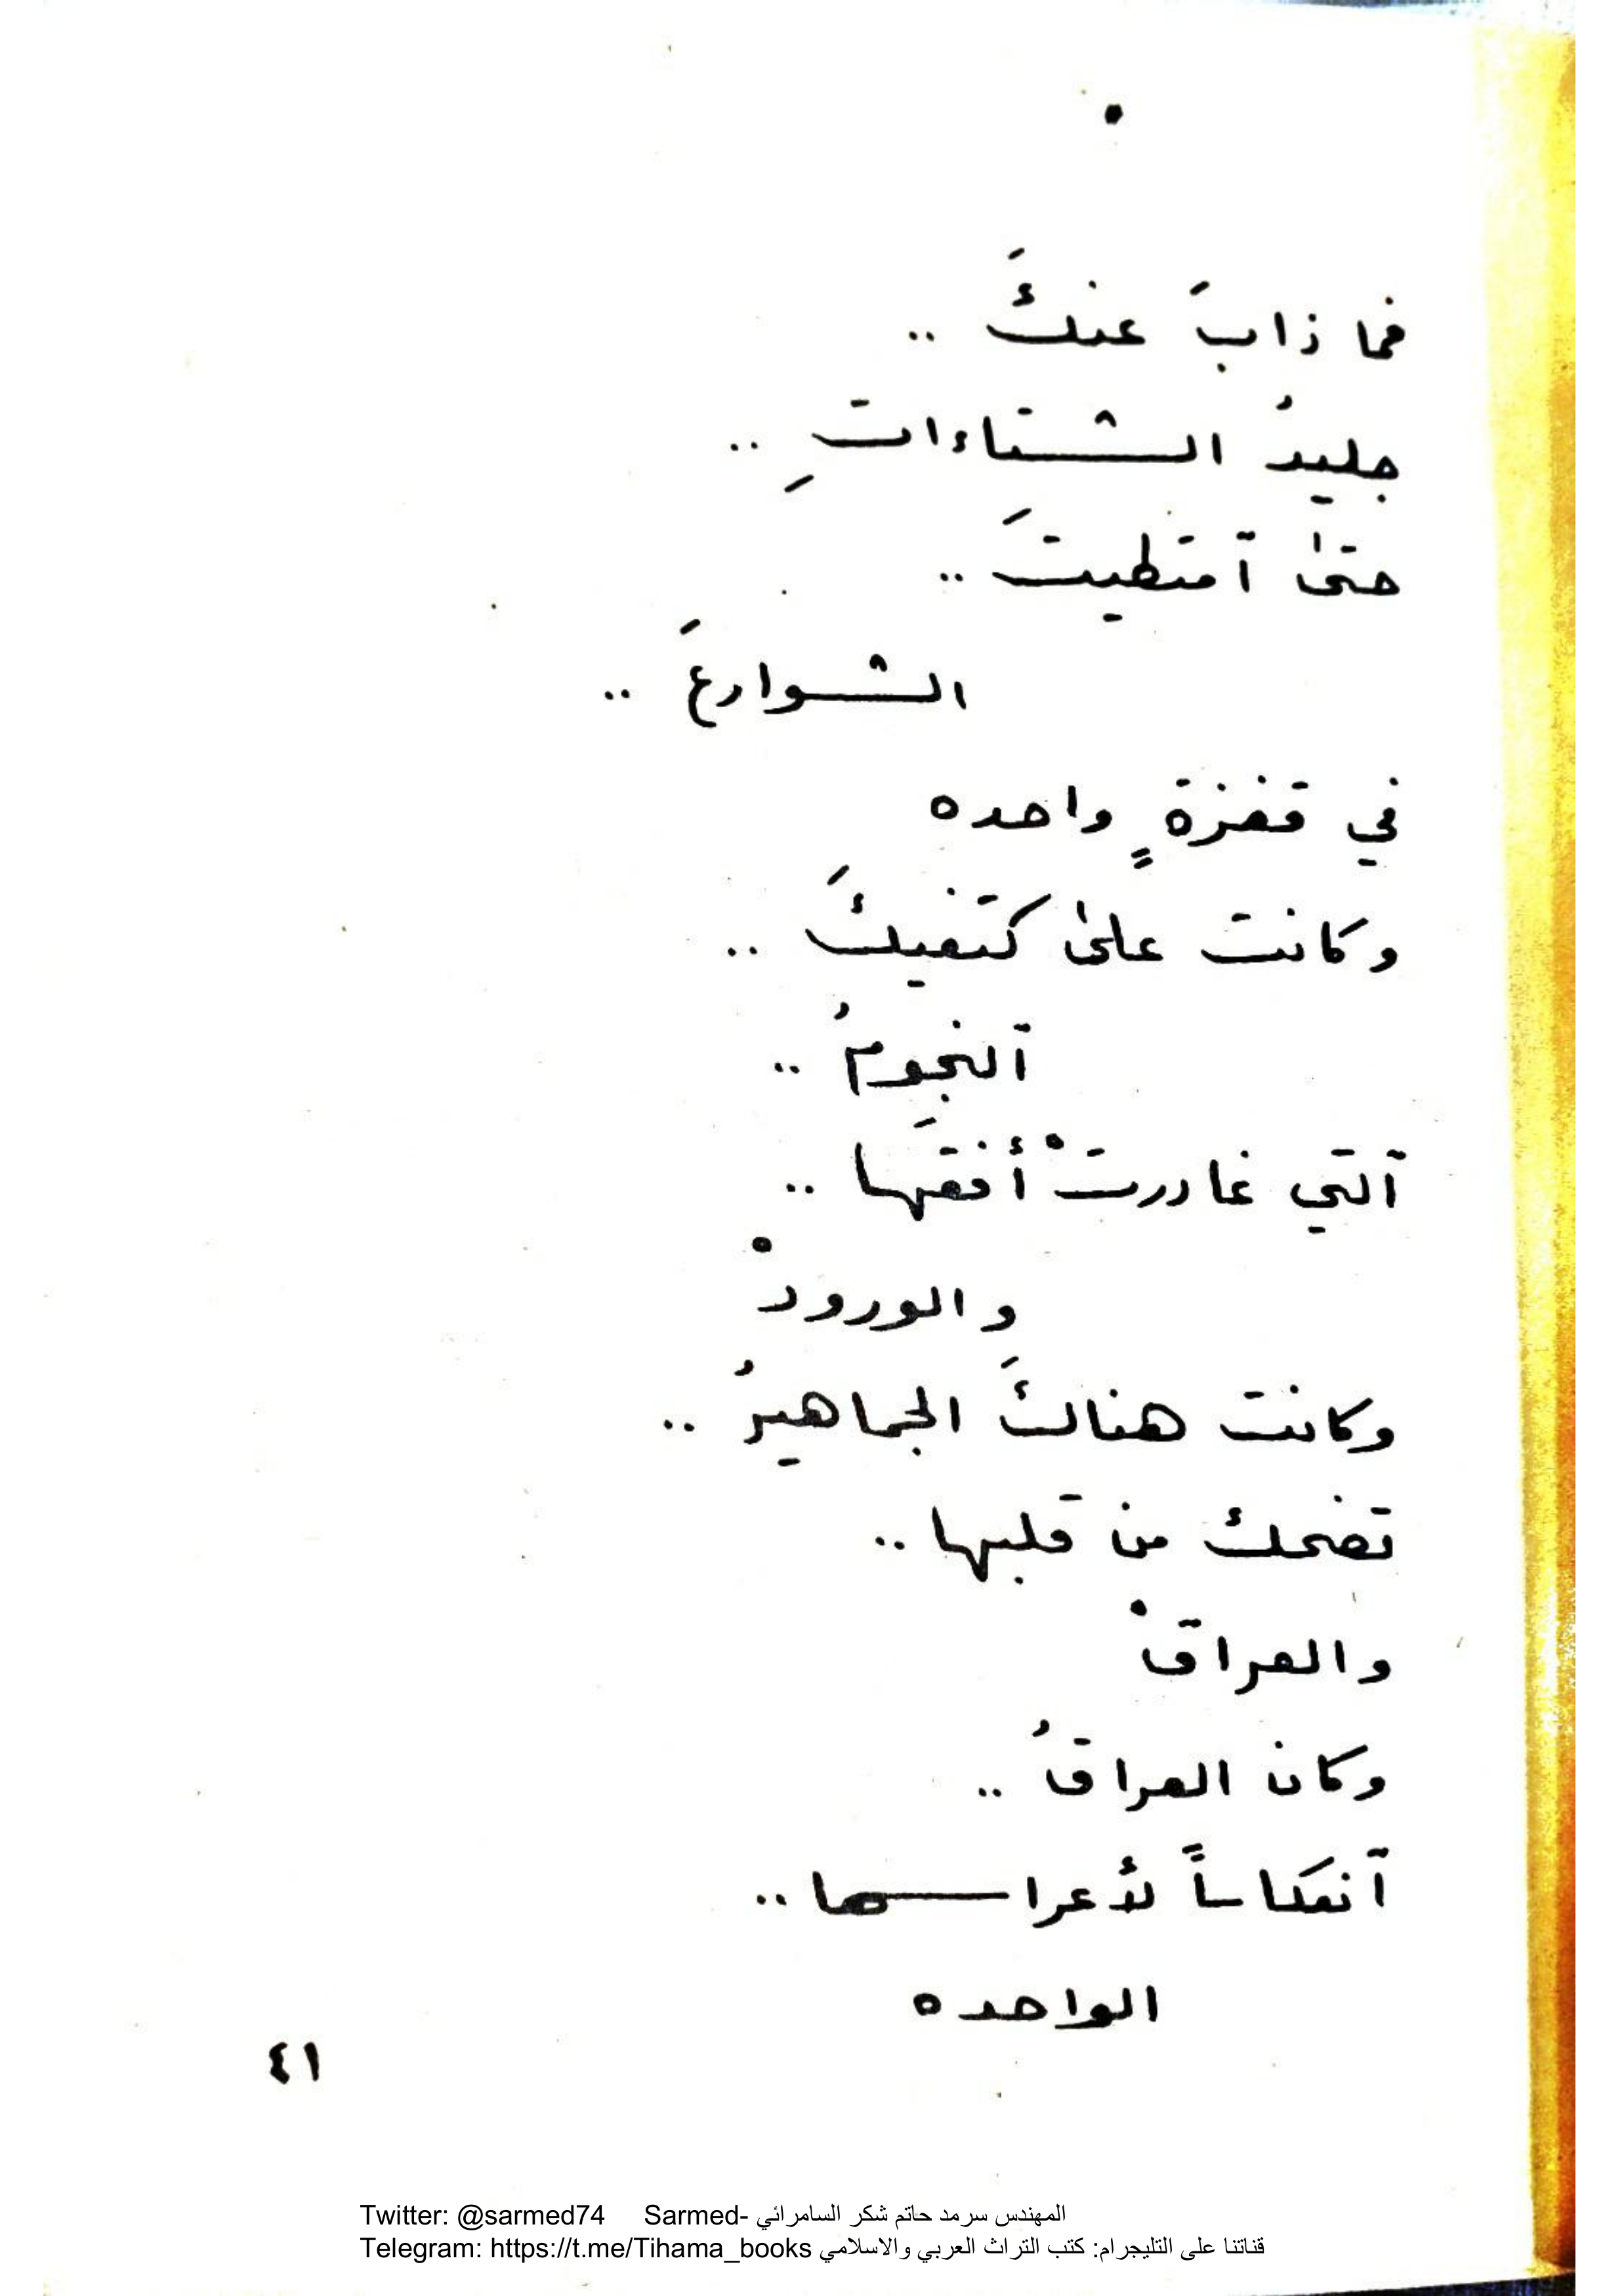 فما ذابَ عنكَ ..
جليدُ الشتاءاتِ ..
حتىٰ آمتطيتَ ..
الشوارعَ ..
في قفزةٍ واحده
وكانت علىٰ كتفيكَ ..
آلنجومُ ..
آلتي غادرتْ أفقَها ..
والورودْ
وكانت هنالكَ الجماهيرُ ..
تضحك من قلبها ..
والعراقْ
وكان العراقُ ..
آنعكاساً لأعراسها ..
الواحده
٤١
Twitter: @sarmed74 Sarmed- المهندس سرمد حاتم شكر السامرائي
Telegram: https://t.me/Tihama_books قناتنا على التليجرام: كتب التراث العربي والاسلامي